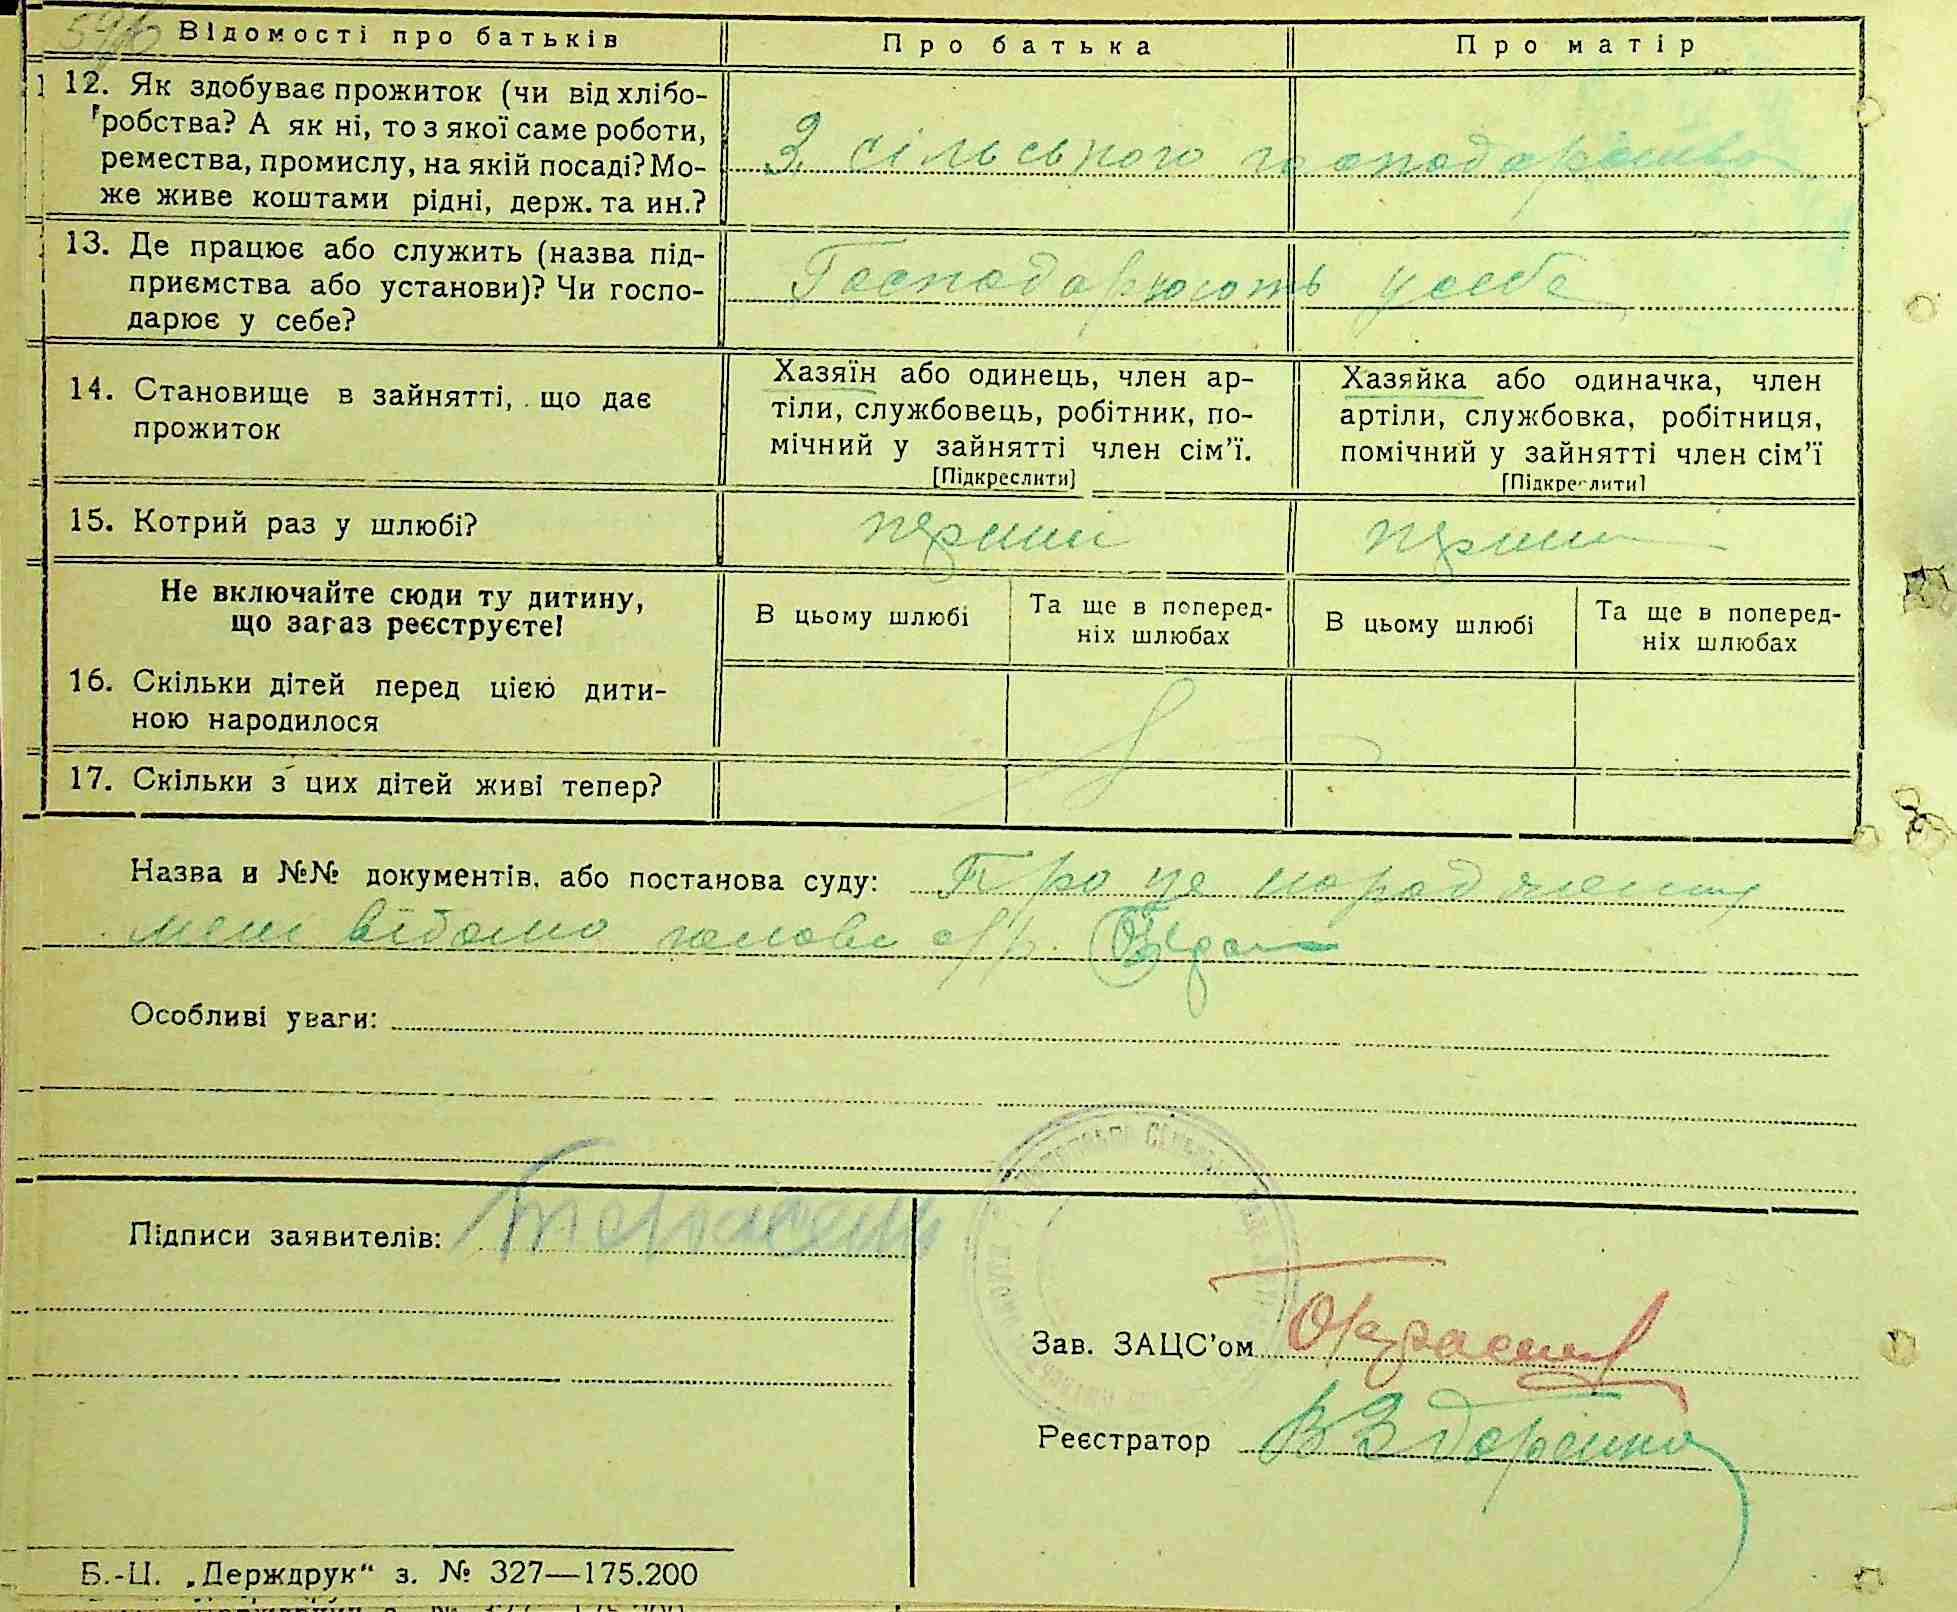 Відомості про батьків
Про батька
Про матір
12. Як здобуває прожиток (чи від хлібо-
робства? А як ні, то з якої саме роботи,
ремества, промислу, на якій посаді? Мо-
же живе коштами рідні, держ. та ин.?
З сільського господарства
13. Де працює або служить (назва під-
приємства або установи)? Чи госпо-
дарює у себе?
Господарюють у себе
14. Становище в зайнятті, що дає
прожиток
Хазяїн або одинець, член ар-
тіли, службовець, робітник, по-
мічний у зайнятті член сім'ї.
[Підкреслити]
Хазяйка або одиначка, член
артіли, службовка, робітниця,
помічний у зайнятті член сім'ї
[Підкреслити]
15. Котрий раз у шлюбі?
перший
перший
Не включайте сюди ту дитину,
що зараз реєструєте!
В цьому шлюбі
Та ще в поперед-
ніх шлюбах
В цьому шлюбі
Та ще в поперед-
ніх шлюбах
16. Скільки дітей перед цією дити-
ною народилося
17. Скільки з цих дітей живі тепер?
Назва и №№ документів, або постанова суду: Про це народження
мені відомо голова с/р.
Особливі уваги:
Підписи заявителів:
Зав. ЗАЦС'ом
Реєстратор В Здоренко
Б.-Ц. „Держдрук" з. № 327—175.200